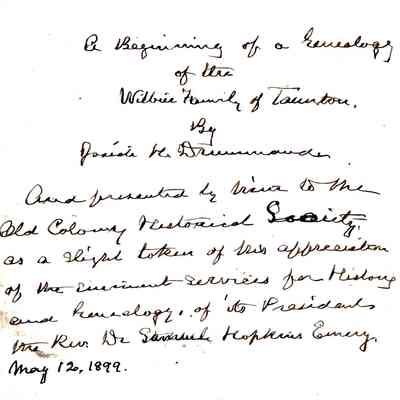 A Beginning of a Genealogy
of the
Wilbur Family of Taunton.
By
Josiah H. Drummond.
And presented by him to the
Old Colony Historical Society,
as a slight token of his appreciation
of the eminent services for History
and Genealogy, of its President
the Rev. Dr Samuel Hopkins Emery.
May 12, 1899.